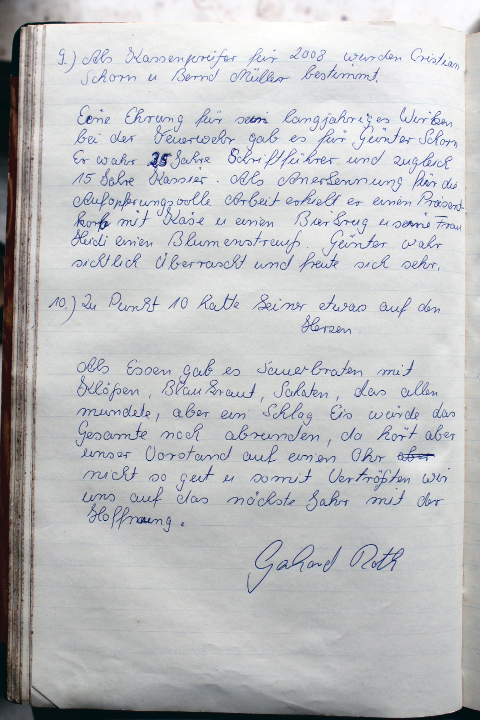 9.) Als Kassenprüfer für 2008 wurden Cristian
Schorn u Bernd Müller bestimmt.
Eine Ehrung für sein langjähriges Wirken
bei der Feuerwehr gab es für Günter Schorn
Er wahr 25 Jahre Schriftführer und zugleich
15 Jahre Kassier. Als Anerkennung für die
Aufopferungsvolle Arbeit erhielt er einen Präsent-
korb mit Käse u einen Bierkrug u seine Frau
Heidi einen Blumenstrauß. Günter wahr
sichtlich überrascht und freute sich sehr.
10.) Zu Punkt 10 hatte keiner etwas auf den
Herzen.
Als Essen gab es Sauerbraten mit
Klößen, Blaukraut, Salaten, das allen
mundete, aber ein Schlag Eis würde das
Gesamte noch abrunden, da hört aber
unser Vorstand auf einen Ohr aber
nicht so gut u somit Vertrößten wir
uns auf das nächste Jahr mit der
Hoffnung.
Gerhard Roth